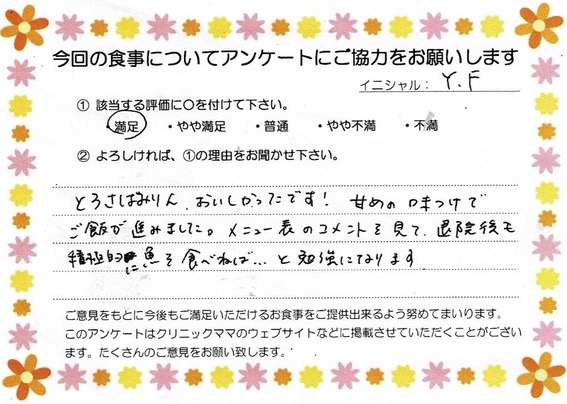 今回の食事についてアンケートにご協力をお願いします
イニシャル： Y.F
① 該当する評価に○を付けて下さい。
・満足 ・やや満足 ・普通 ・やや不満 ・不満
② よろしければ、①の理由をお聞かせ下さい。
とろさばみりん、おいしかったです! 甘めの味つけで
ご飯が進みました。メニュー表のコメントを見て、退院後も
積極的に魚を食べねば… と勉強になります
ご意見をもとに今後もご満足いただけるお食事をご提供出来るよう努めてまいります。
このアンケートはクリニックママのウェブサイトなどに掲載させていただくことがござい
ます。たくさんのご意見をお願い致します。